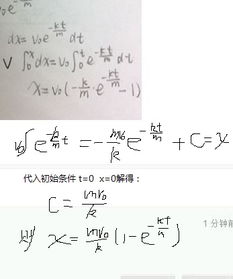 v₀e^{-kt/m}
dx = v₀e^{-kt/m} dt
V ∫₀ˣ dx = v₀∫₀ᵗ e^{-kt/m} dt
x = v₀(-k/m · e^{-kt/m} - 1)
v₀∫e^{-k/m t} = -mv₀/k e^{-kt/m} + C = x
代入初始条件 t=0 x=0解得：
C = mv₀/k
1 分钟前
则 x = mv₀/k (1-e^{-kt/m})